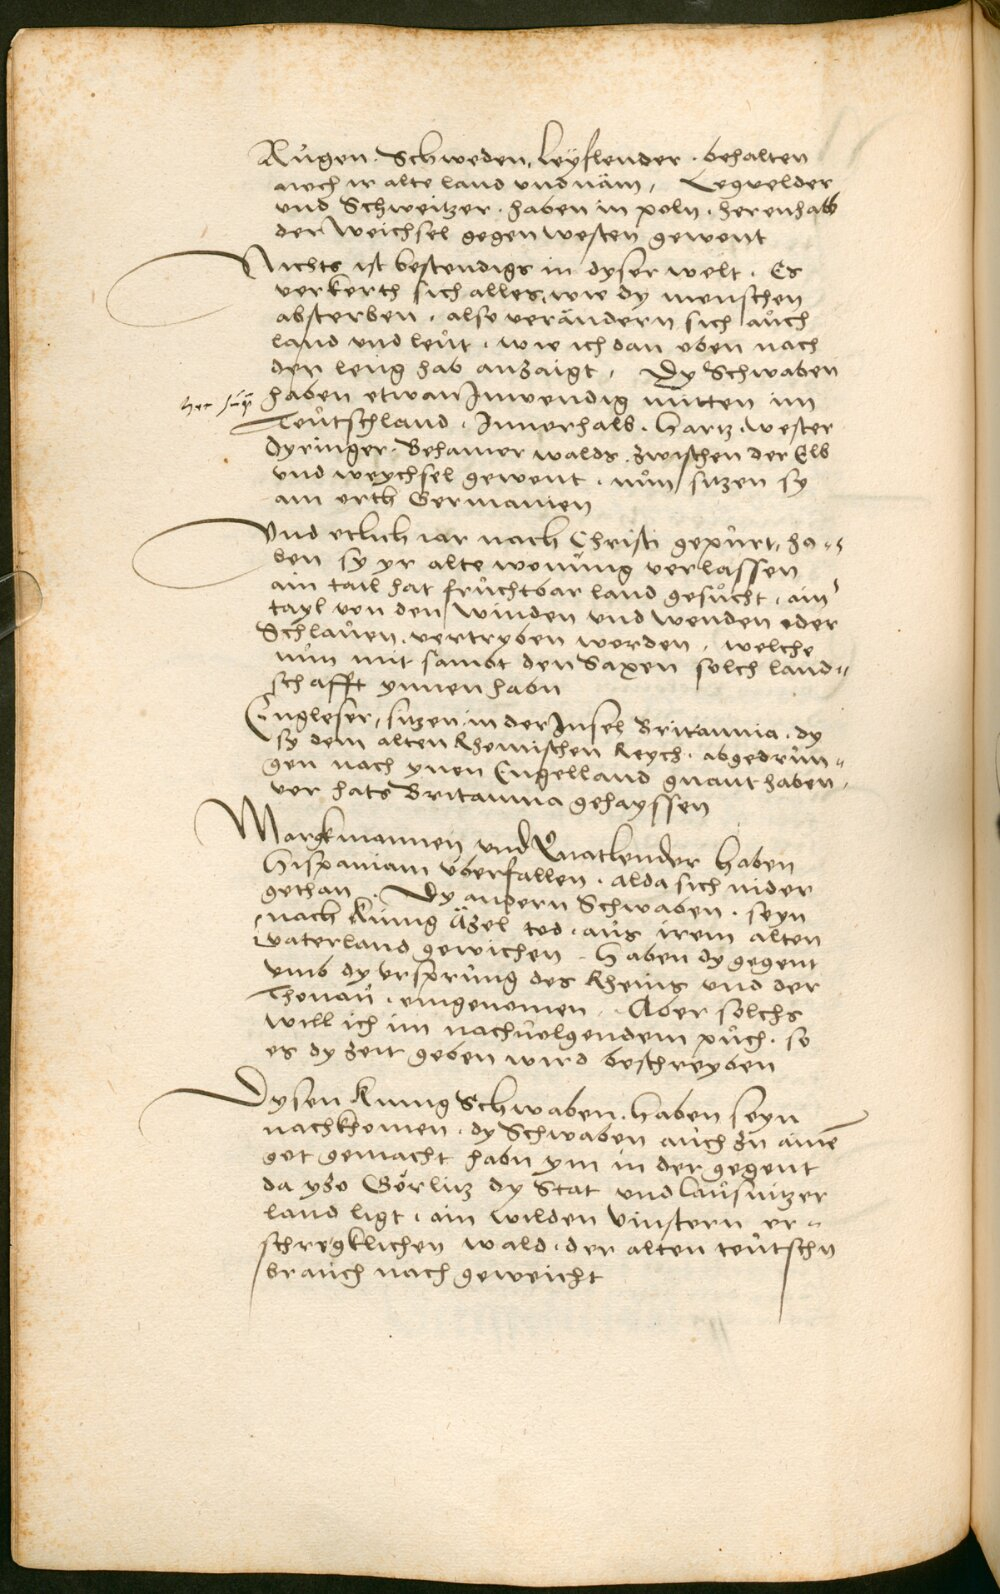 Růgen. Schweden, Leyflender. behalten
noch ir alte land vnd näm, Legvelder
vnd Schweitzer. haben in poln. herenhalb
der Weichsel gegen westen gewont
Nichts ist bestendigs in dyser welt. Es
verkerth sich alles, wie dy menschen
absterben. also verändern sich aůch
land vnd leůt. wie ich dan oben nach
der leng hab anzaigt, Dy Schwaben
haben etwan Inwendig mitten im
Teůtschland. Innerhalb. Hartz. wester
Dyringer. Behamer walds. zwischen der Elb
vnd weychsel gewont. nůn sitzen sy
am orth Germanien
Vnd etlich iar nach Christi gepůrt, ha-
ben sy yr alte wonůng verlassen
ain tail hat frůchtbar land gesůcht. ain
tayl von den Winden vnd Wenden oder
Schlaůen. vertryben worden. welche
nůn mit sambt den Saxen solch land-
schafft ynnen habn
Engleser, sitzen in der Insel Britannia. dy
sy dem alten Rhomischen Reych. abgedrůn-
gen nach ynen Engelland gnant haben.
vor hats Britannia gehayssen
Margkmannen vnd Quatlender haben
Hispaniam ůberfallen. alda sich nider
gethan. Dy andern Schwaben. seyn
nach Künig Äzel tod. aůs irem alten
vaterland gewichen. Haben dy gegent
vmb dy vrsprůng des Rheins vnd der
Thonaů. eingenomen. Aber solchs
will ich im nachůolgendem půch. so
es dy zeit geben wird beschreyben
Dysen Künig Schwaben. haben seyn
nachkhomen. dy Schwaben aůch zů ainē
got gemacht habn ym in der gegent
da yzo Görlitz dy Stat vnd Laůsnitzer
land ligt. ain wilden vinstern er-
schregklichen wald. der alten teůtschn
braůch nach geweicht